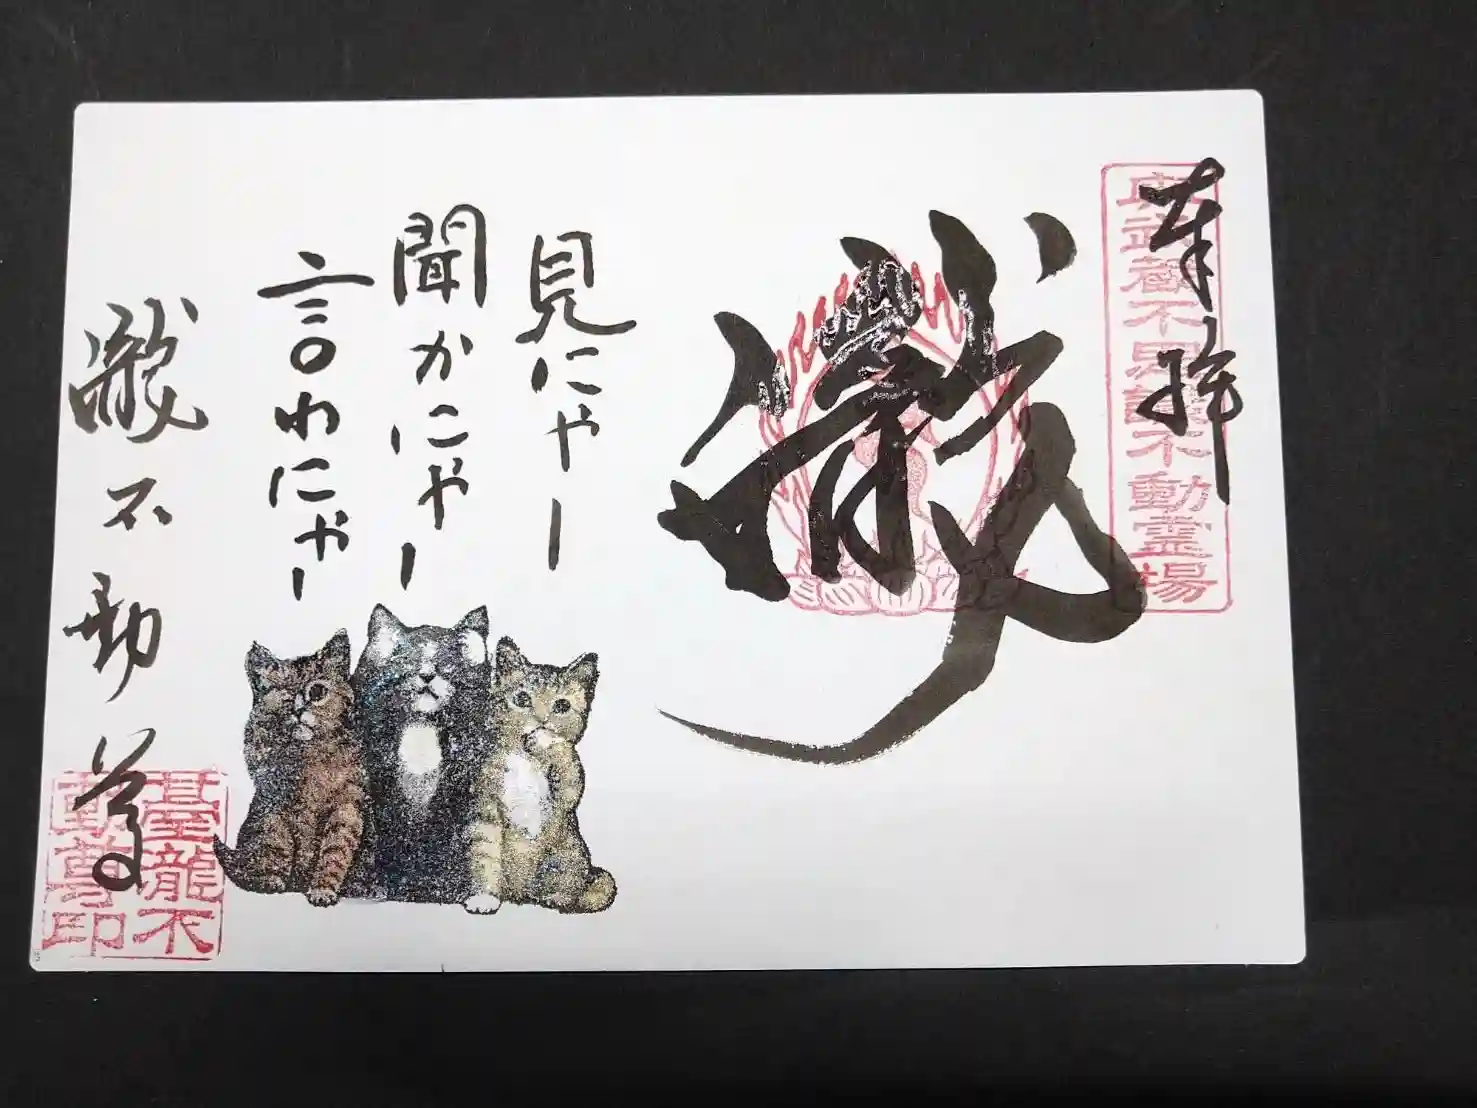 奉拝
不動霊場
瀧
見にゃー
聞かにゃー
言〇わにゃー
瀧不動尊
臺瀧不
動尊印